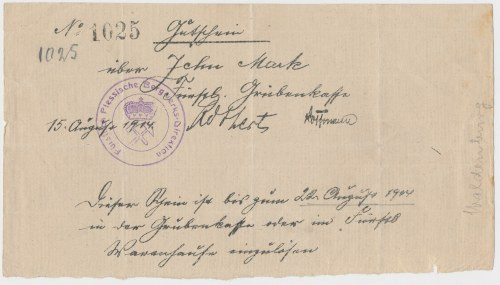 No 1025 Gutschein
1025
über Zehn Mark
Fürstl. Grubenkasse
Fürstl. Plessische Bergwerks-Direction
15. August 1914.
Dieser Schein ist bis zum 22. August 1914
in der Grubenkasse oder im Fürstl
Warenhause einzulösen
Waldenburg